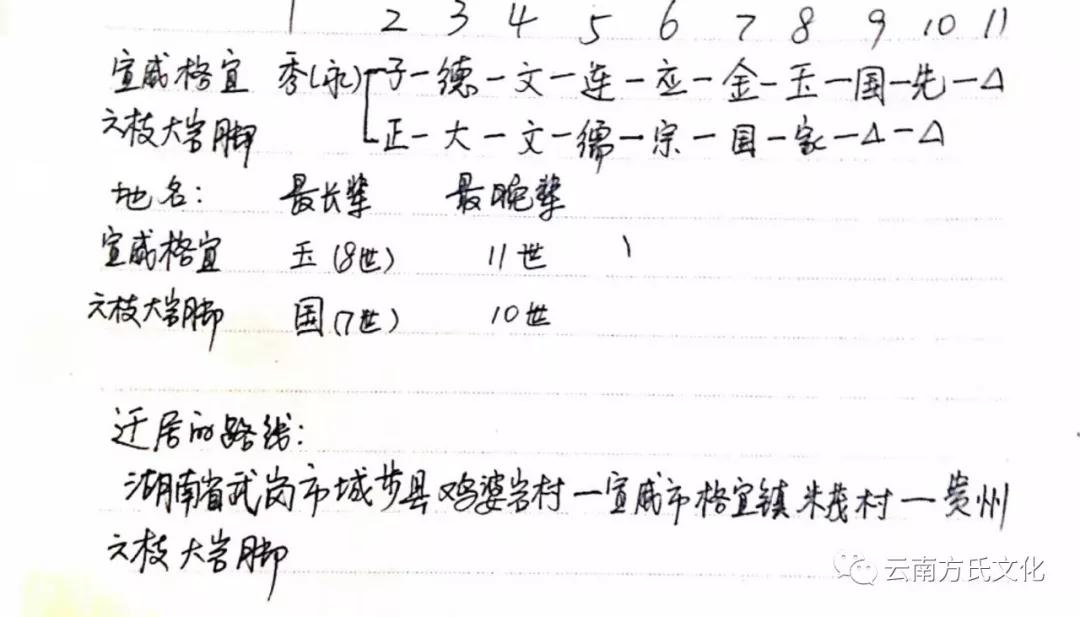 1 2 3 4 5 6 7 8 9 10 11
宣威格宜 秀(永) 子一德一文一连一应一金一玉一国一先一△
六枝大岩脚 正一大一文一儒一宗一国一家一△一△
地名: 最长辈 最晚辈
宣威格宜 玉(8世) 11世
六枝大岩脚 国(7世) 10世
迁居的路线:
湖南省武岗市城步县鸡婆岩村一宣威市格宜镇米茂村一贵州
六枝大岩脚
云南方氏文化